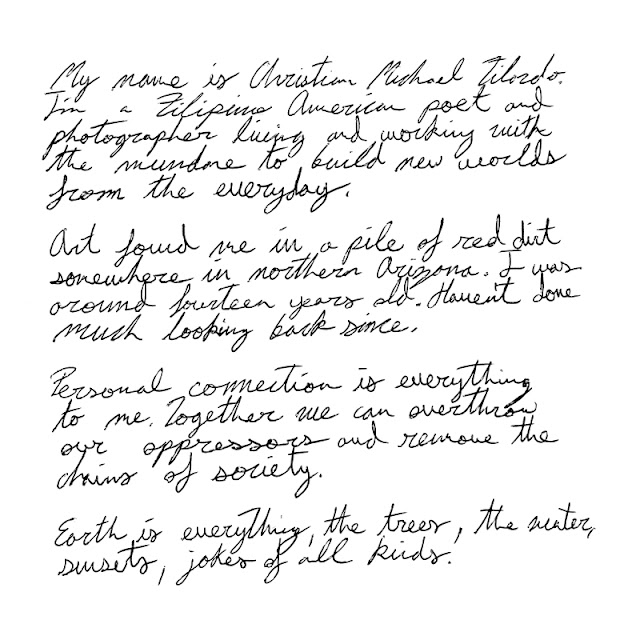 My name is Christian Michael Filardo.
I'm a Filipino American poet and
photographer living and working with
the mundane to build new worlds
from the everyday.
Art found me in a pile of red dirt
somewhere in northern Arizona. I was
around fourteen years old. Haven't done
much looking back since.
Personal connection is everything
to me. Together we can overthrow
our oppressors and remove the
chains of society.
Earth is everything, the trees, the water,
sunsets, jokes of all kinds.